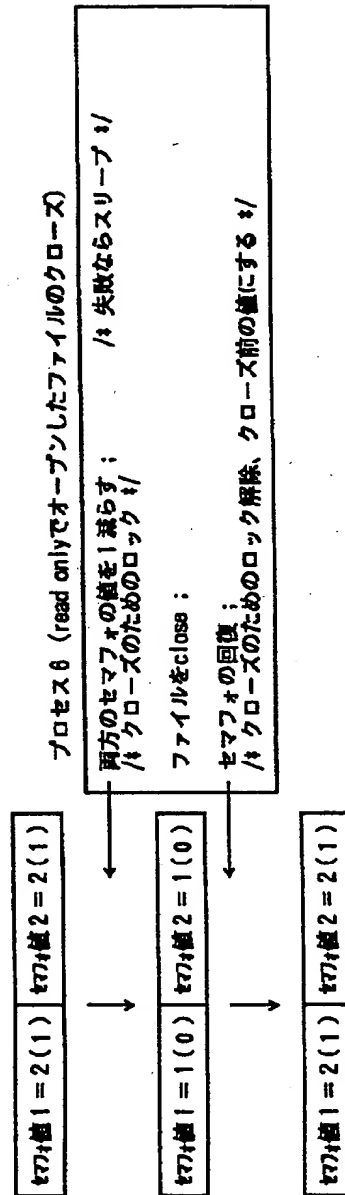 プロセス6 (read onlyでオープンしたファイルのクローズ)
両方のセマフォの値を1減らす； /* 失敗ならスリープ */
/* クローズのためのロック */
ファイルをclose；
セマフォの回復；
/* クローズのためのロック解除、クローズ前の値にする */
セマフォ値1＝2(1) セマフォ値2＝2(1)
セマフォ値1＝1(0) セマフォ値2＝1(0)
セマフォ値1＝2(1) セマフォ値2＝2(1)